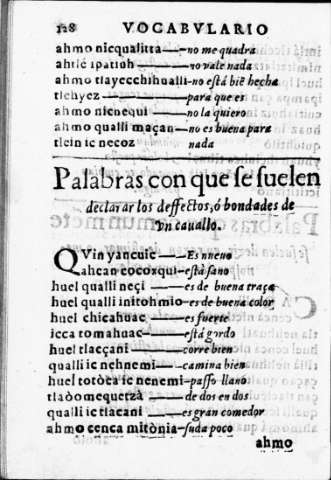 128 VOCABVLARIO
ahmo nicqualitta—no me quadra
ahtlc ipatiuh—no vale nada
ahmo tlayecchihualli-no está biē hecha
tlehyez—para que es
ahmo nicnequi—no la quiero
ahmo qualli maçan—no es buena para
tlein ic necoz nada
Palabras con que se suelen
declarar los deffectos, ó bondades de
vn cauallo.
QVin yancuic—Es nneuo
ahcan cocosqui—está sano
huel qualli neçi—es de buena traça
huel qualli initohmio-es de buena color
huel chicahuac—es fuerte
icca tomahuac—está gordo
huel tlacçani—corre bien
qualli ic nehnemi—camina bien
huel totoca ic nenemi-passo llano
tlaòomequetzà—de dos en dos
qualli ic tlacani—es gran comedor
ahmo cenca mitònia-suda poco
ahmo